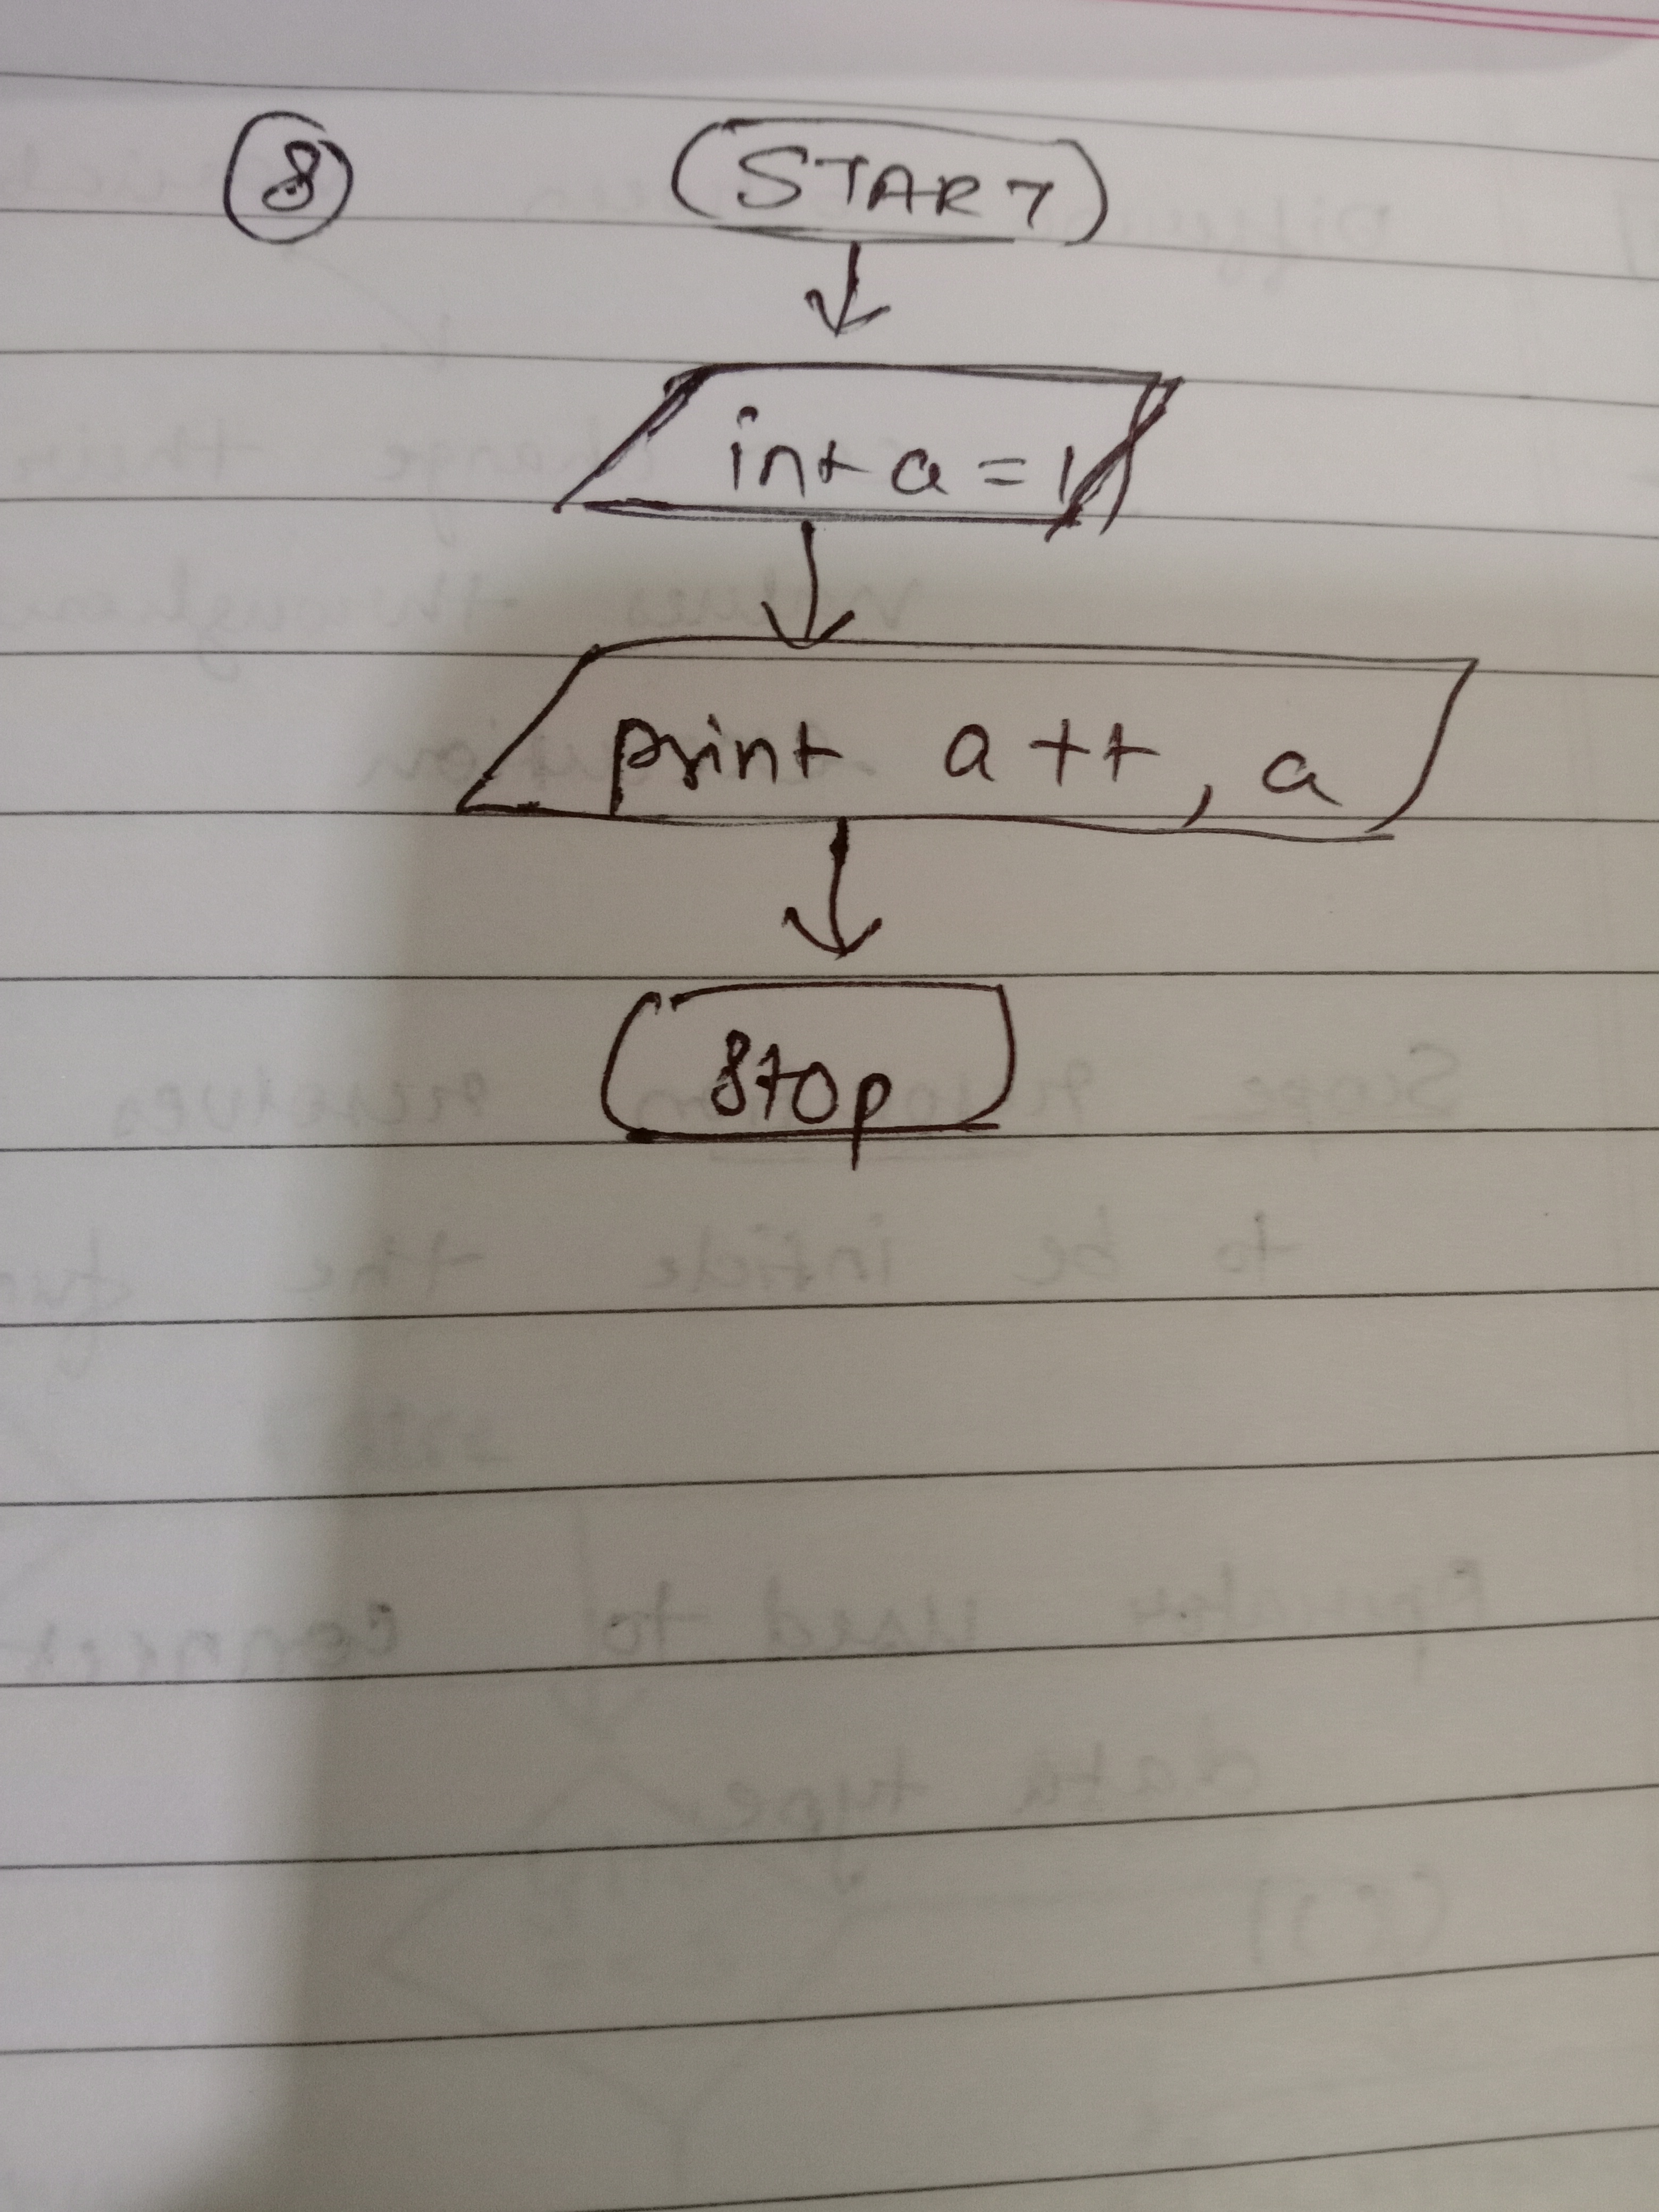 8 START
int a = 1
print a ++, a
Stop